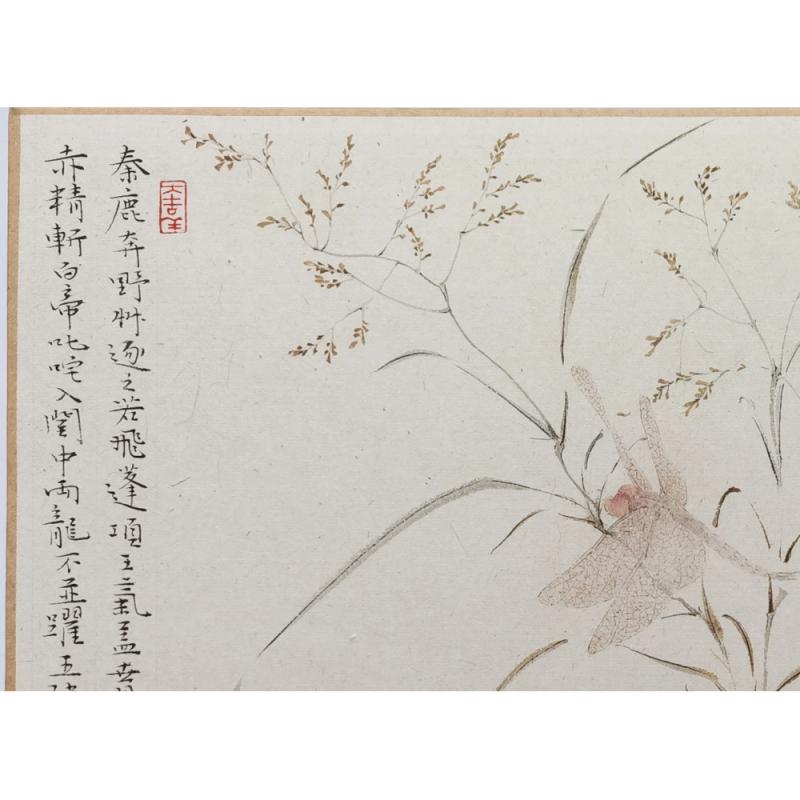 大吉羊
秦鹿奔野艸逐之若飛蓬項王氣盖世
赤精斬白帝叱咤入関中兩龍不並躍五